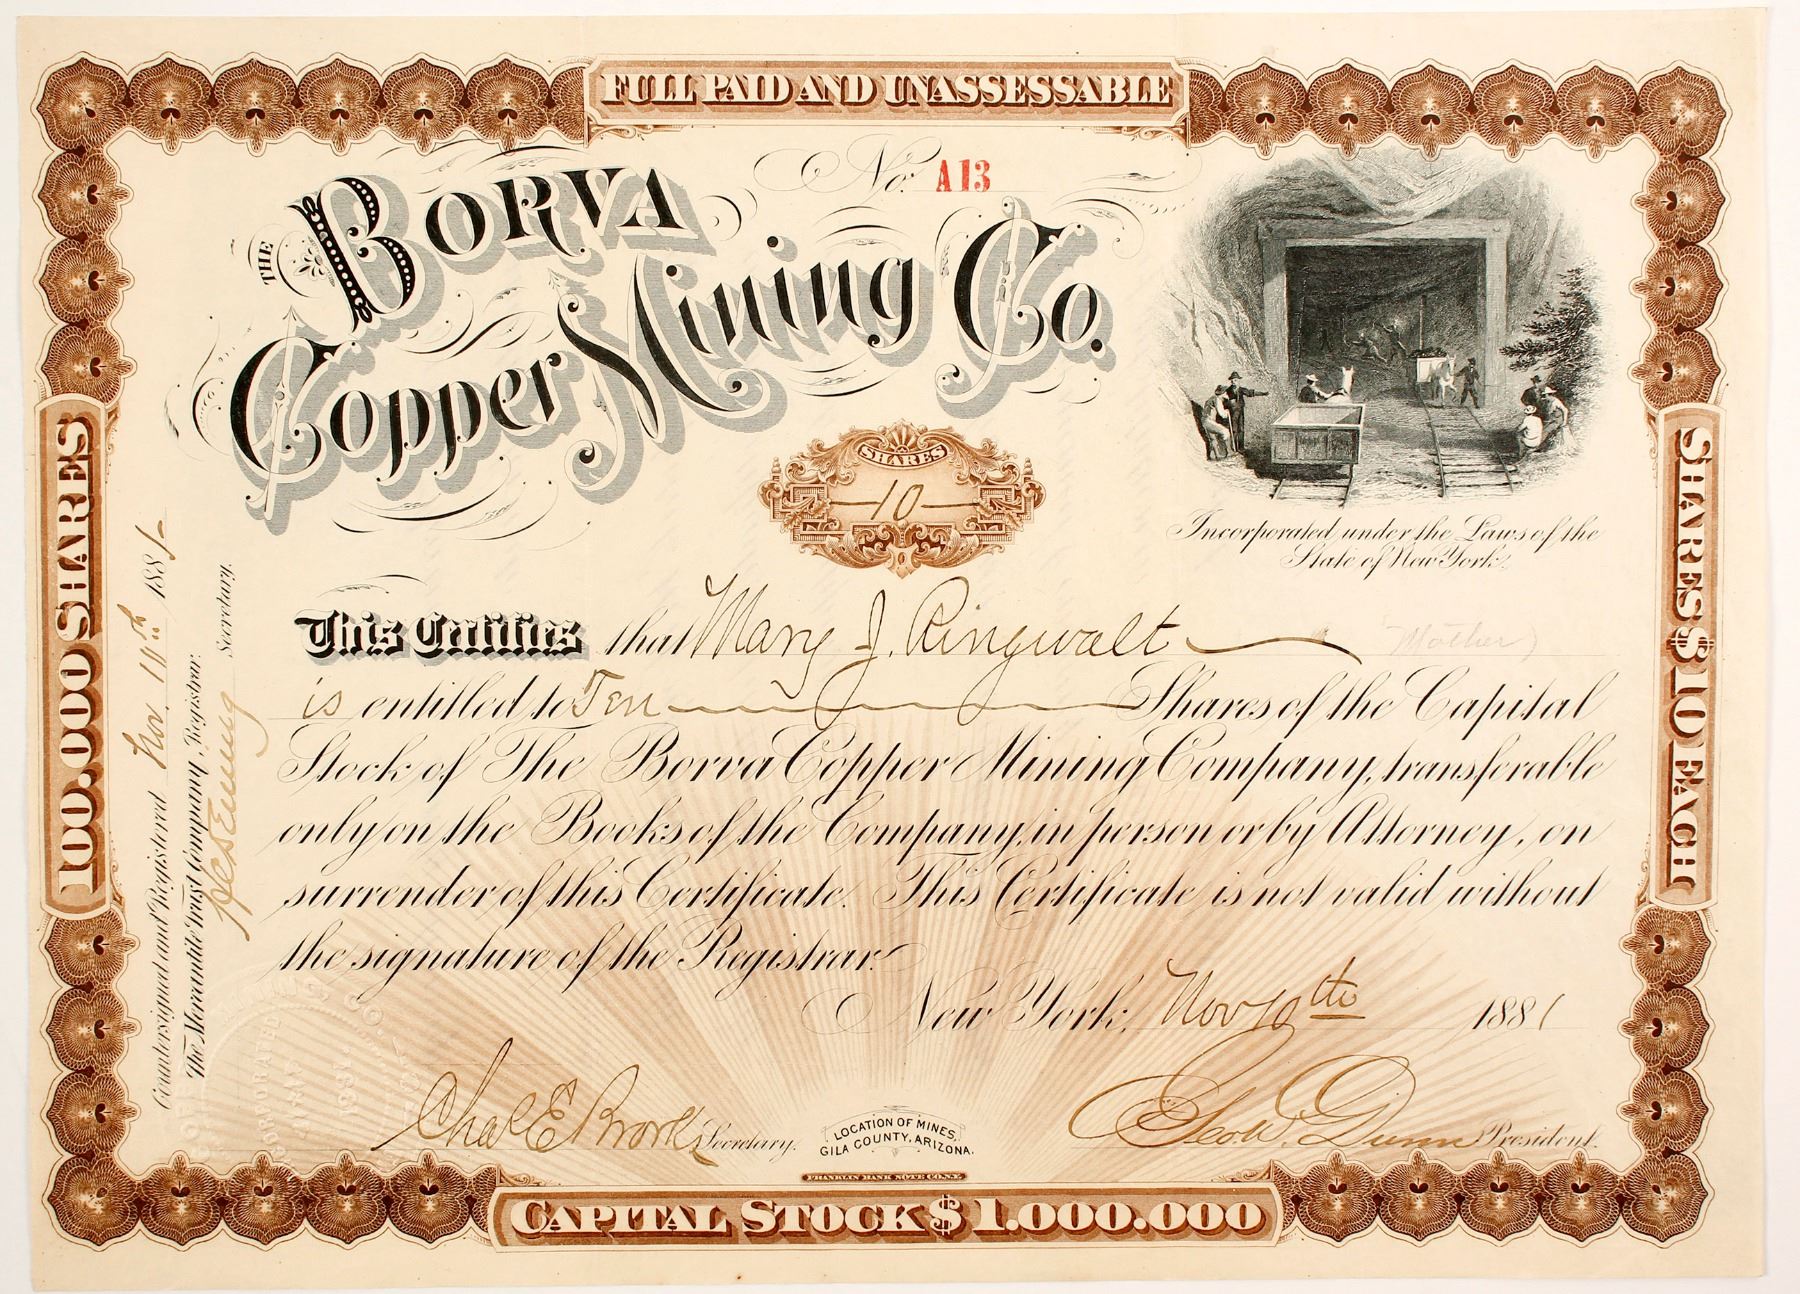 FULL PAID AND UNASSESSABLE
No. A13
THE BORVA
Copper Mining Co.
SHARES
10
Incorporated under the Laws of the
State of New York.
This Certifies that Mary J. Ringwalt (Mother)
is entitled to Ten Shares of the Capital
Stock of The Borva Copper Mining Company, transferable
only on the Books of the Company, in person or by Attorney, on
surrender of this Certificate. This Certificate is not valid without
the signature of the Registrar.
New York, Nov 10th 1881
Secretary.
LOCATION OF MINES,
GILA COUNTY, ARIZONA.
President.
FRANKLIN BANK NOTE CO. N.Y.
CAPITAL STOCK $1.000.000
100.000 SHARES
Countersigned and Registered Nov. 10th 1881
The Mercantile Trust Company, Registrar.
Secretary.
SHARES $10 EACH